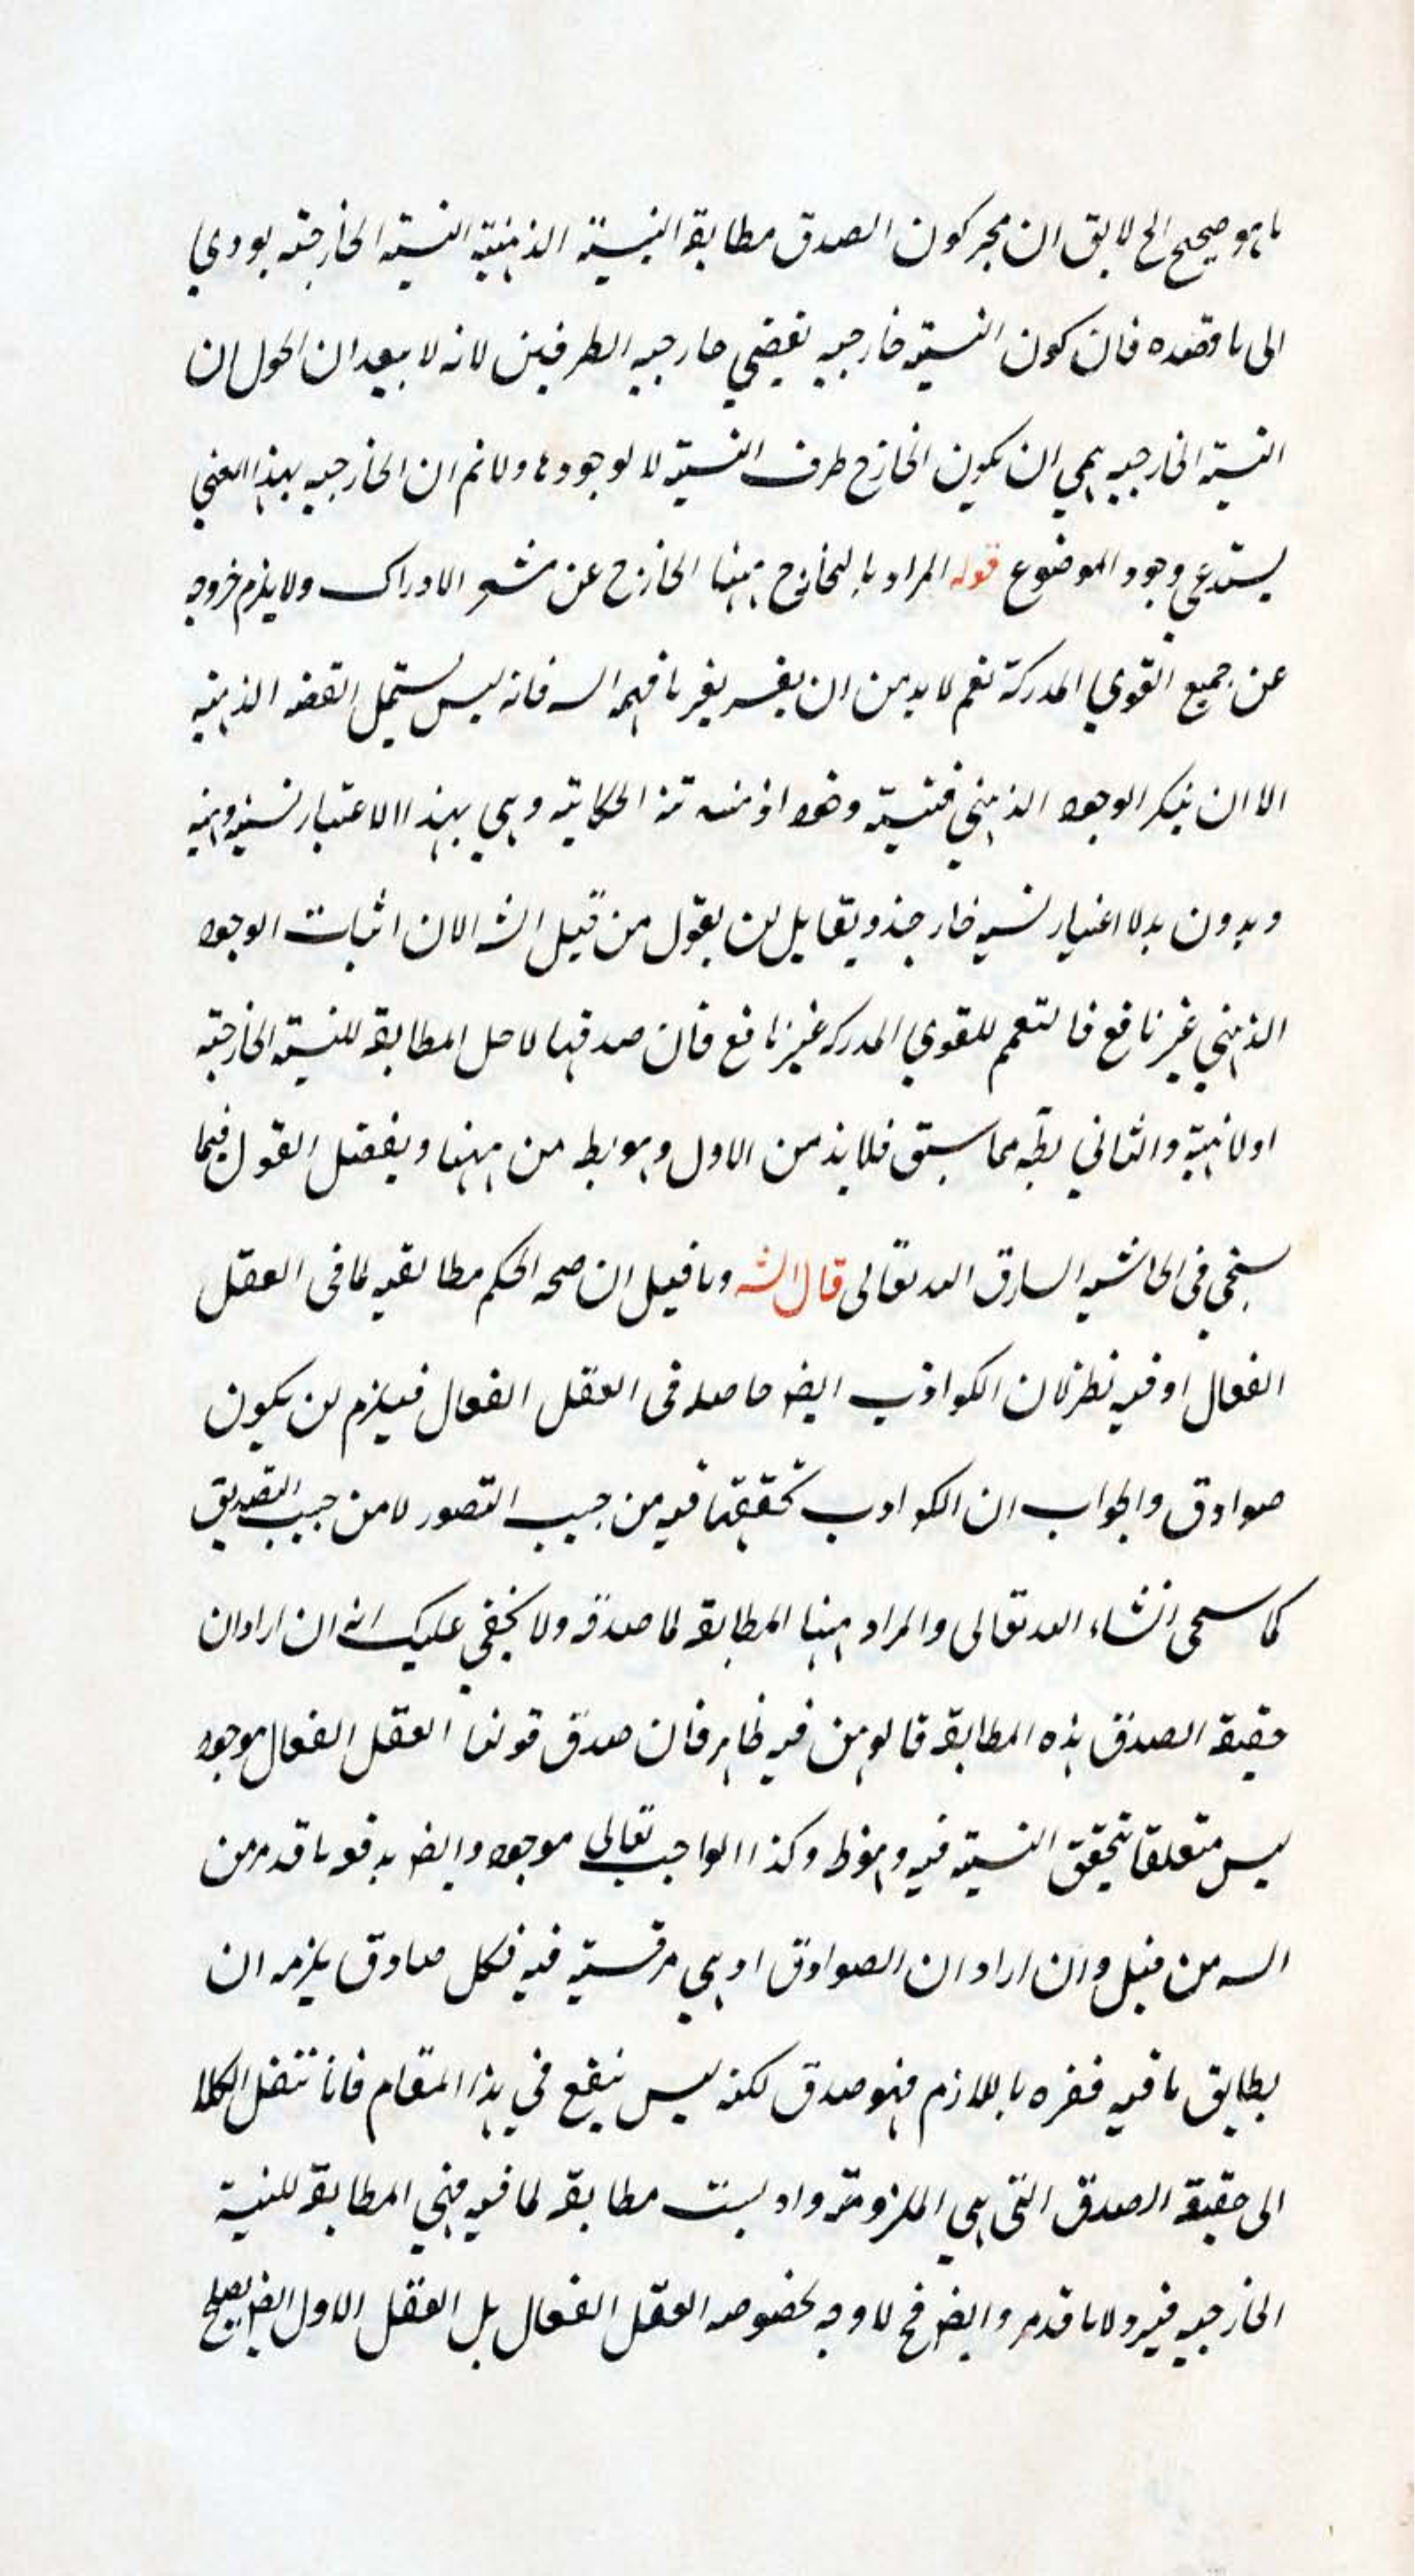 ما هو صحيح الخ لا يق ان مجر كون الصدق مطابقة النسبة الذهنية النسبة الخارجية يودي
الى ما قصده فان كون النسبة خارجيه يقضي خارجيه الطرفين لانه لا يبعد ان الحول ان
النسبة الخارجيه هي ان يكون الخارج ظرف النسبة لا لوجودها ولا نم ان الخارجيه بهذا المعني
يستدعي وجود الموضوع قوله المراد بالخارج ههنا الخارج عن مشعر الادراك ولا يلزم خروجه
عن جميع القوي المدركة نعم لا بد من ان يفسر بغير ما فهمه السه فانه ليس يستمل القضه الذهنيه
الا ان ينكر الوجود الذهني فنسبة وهو اذ من الحكاية وهي بهذا الاعتبار نسبه ذهنيه
وبدون هذ الاعتبار نسبه خارجية ويقابل لن يقول من قبيل الشه الان اثبات الوجود
الذهني غير نافع فالتعمم للقوي المدركه غير نافع فان صدقها لا حل المطابقة للنسبة الخارجية
اولا نهية والثاني بطه مما سبق فلا بد من الاول وهو بط من ههنا ويفصل القول فيما
سيجي في الحاشيه السارق الله تعالى قال الشه وما قيل ان صحه الحكم مطابقيه لما في العقل
الفعال او فيه نظر لان الكواذب ايضا حاصله في العقل الفعال فيلزم لن يكون
صوادق والجواب ان الكوادب تحققها فيه من جيب التصور لا من جيب التصديق
كما سحى انشاء الله تعالى والمراد ههنا المطابقة لما صدقه ولا يخفي عليك انه ان ارادان
حقيقة الصدق هذه المطابقة فالوهن فيه ظاهر فان صدق قولنا العقل الفعال موجود
ليس متعلقا بتحقق النسبة فيه وهو ظ وكذا الواجب تعالى موجود وايضا يدفعه ما قد مر من
السه من قبل وان اراد ان الصوادق اد هي مرتسبة فيه فكل صادق يلزمه ان
يطابق ما فيه ففره باللازم فهو صدق لكنه ليس ينفع في هذا المقام فانا ننقل الكلا
الى حقيقة الصدق التي هي الملزومة واد ليست مطابقة لما فيه فهي المطابقة للنسبة
الخارجيه فيرد لا ما قد مر وايضا فح لا وجه لخصوصه العقل الفعال بل العقل الاول ايضا يصلح